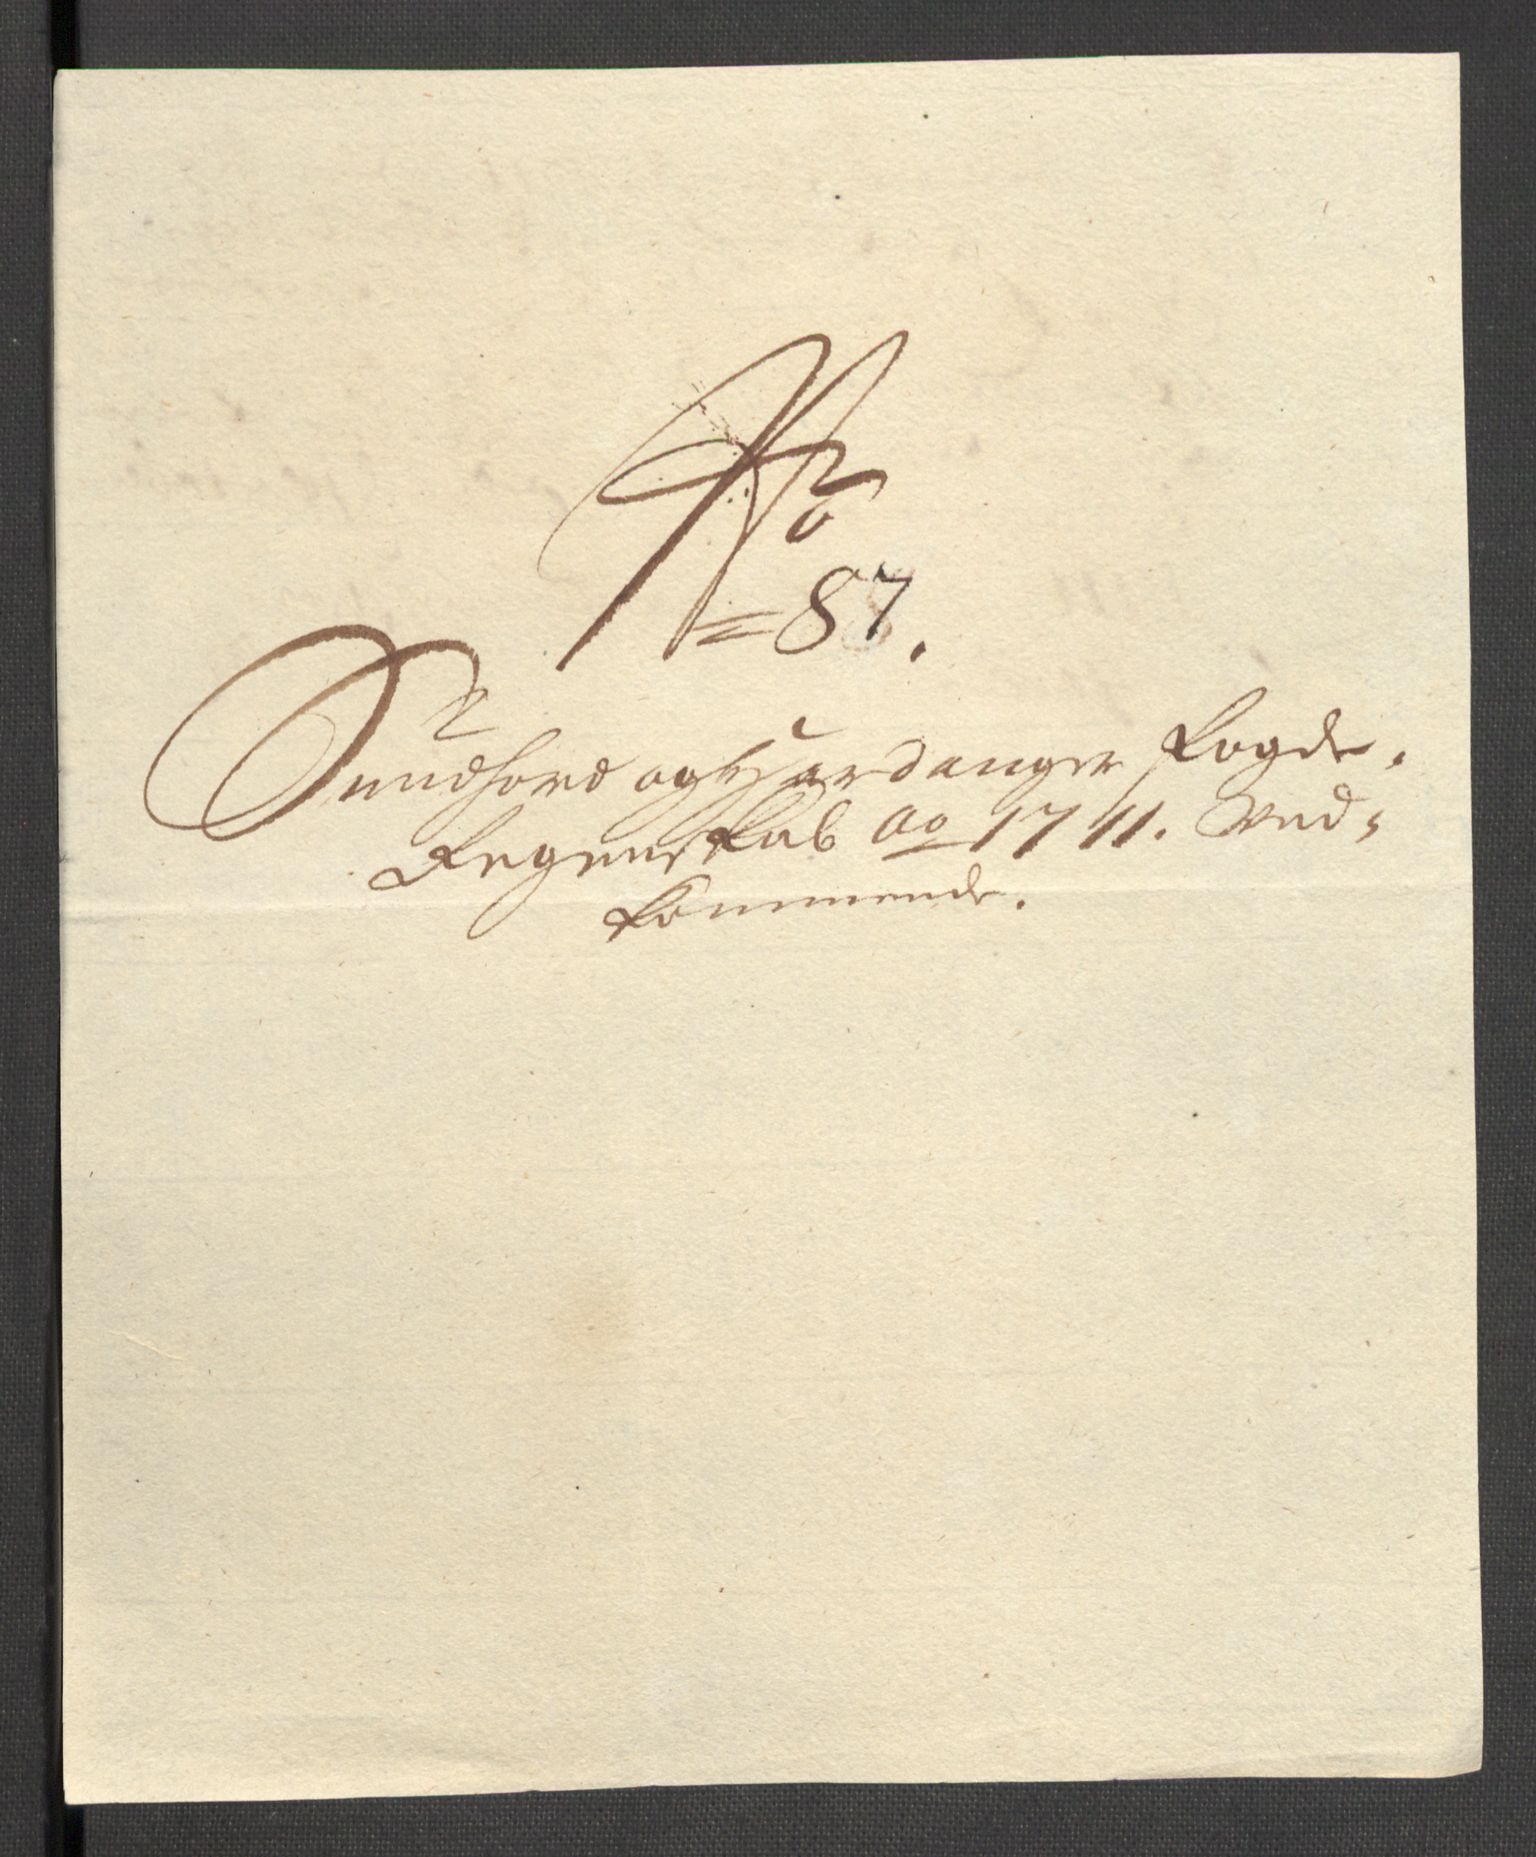 No
= 87.
Sundhord og Hardanger Fogde.
Regenskab Ao 1711. Ved=
kommende.